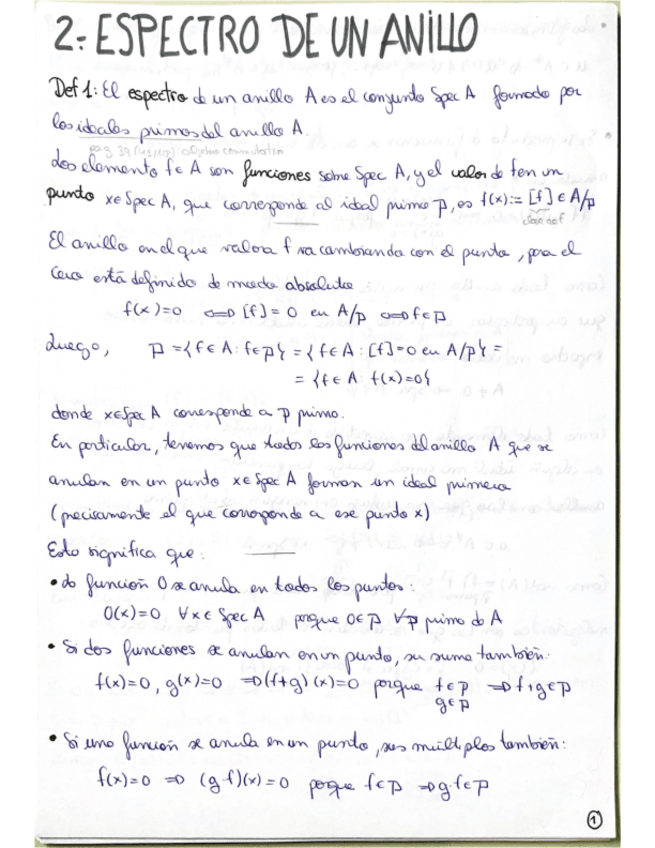 2.- ESPECTRO DE UN ANILLO
Def 1: El espectro de un anillo A es el conjunto Spec A formado por
los ideales primos del anillo A.
Los elemento f ∈ A son funciones sobre Spec A, y el valor de f en un
punto x ∈ Spec A, que corresponde al ideal primo p, es f(x) := [f] ∈ A/p
El anillo en el que valora f va cambiando con el punto, pero el
cero está definido de modo absoluto:
f(x)=0 ⟺ [f]=0 en A/p ⟺ f∈p
Luego, p = {f∈A : f∈p} = {f∈A : [f]=0 en A/p} =
= {f∈A : f(x)=0}
donde x∈Spec A corresponde a p primo.
En particular, tenemos que todas las funciones del anillo A que se
anulan en un punto x∈Spec A forman un ideal primero
(precisamente el que corresponde a ese punto x)
Esto significa que:
• La función 0 se anula en todos los puntos:
0(x)=0 ∀x∈Spec A porque 0∈p ∀p primo de A
• Si dos funciones se anulan en un punto, su suma también:
f(x)=0, g(x)=0 ⟹ (f+g)(x)=0 porque f∈p ⟹ f+g∈p
g∈p
• Si una función se anula en un punto, sus múltiplos también:
f(x)=0 ⟹ (g·f)(x)=0 porque f∈p ⟹ g·f∈p
1